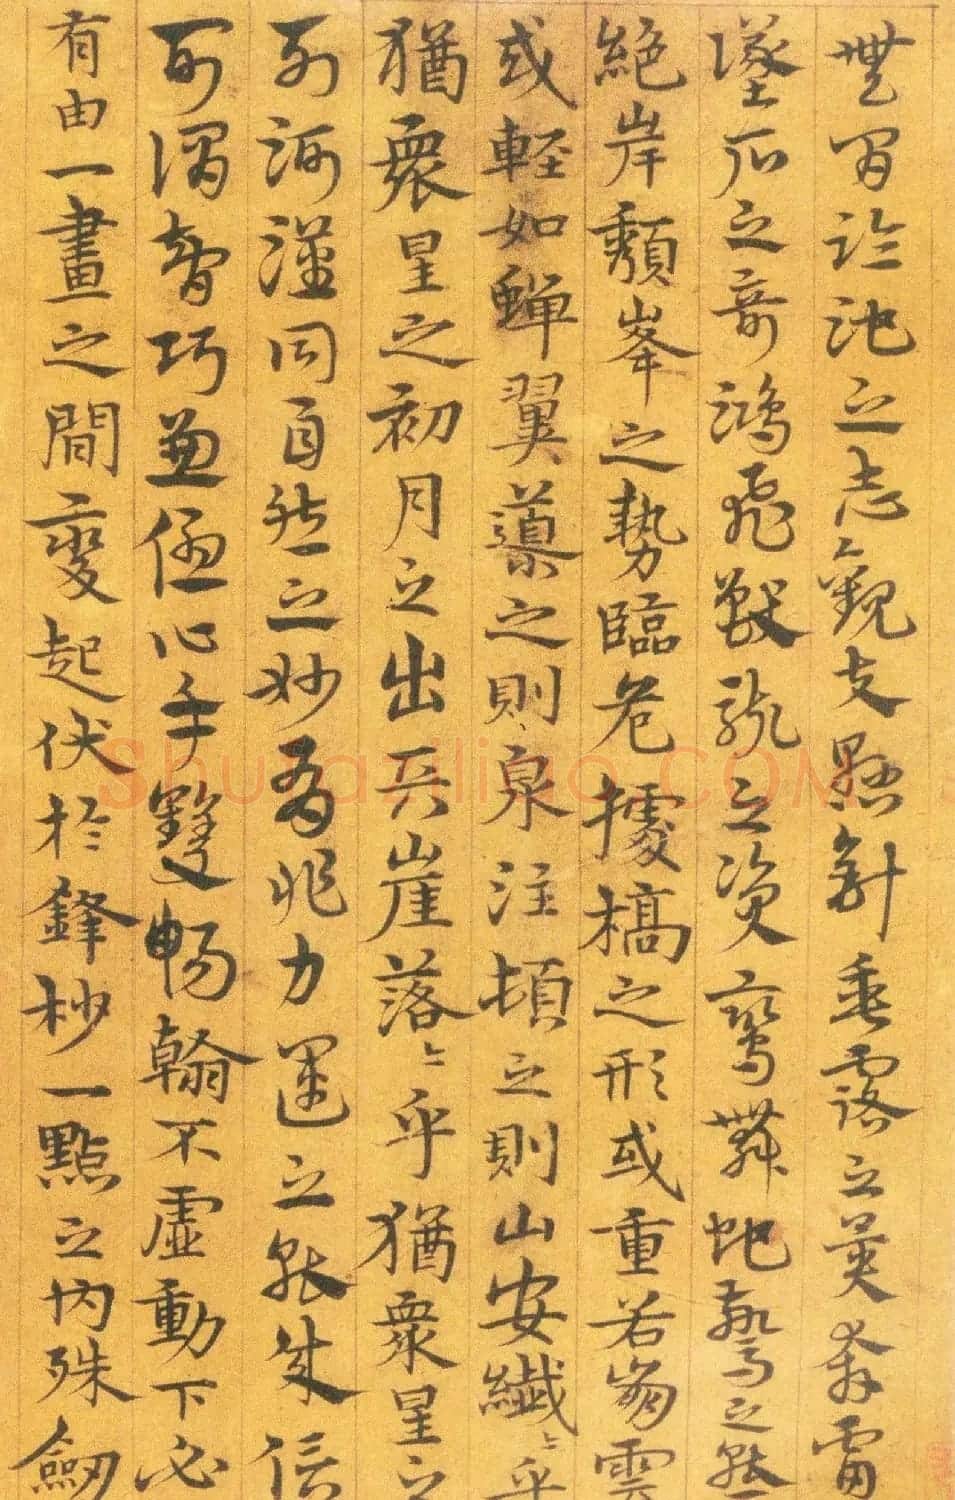 無間臨池之志觀夫懸針垂露之異奔雷
墜石之奇鴻飛獸駭之資鸞舞蛇驚之態
絕岸頹峯之勢臨危據槁之形或重若崩雲
或輕如蟬翼導之則泉注頓之則山安纖〻乎
猶衆星之初月之出天崖落〻乎猶衆星之
列河漢同自然之妙有非力運之能成信
可謂智巧兼優心手雙暢翰不虛動下必
有由一畫之間變起伏於鋒杪一點之內殊衄
Shufaziliao.COM